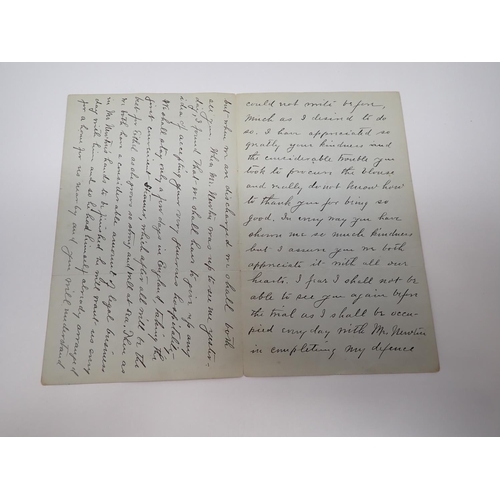 could not write before,
Much as I desired to do
so. I have appreciated so
greatly your kindness and
the considerable trouble you
took to procure the blouse
and really do not know how
to thank you for being so
good. In every way you have
shown me so much kindness
but I assure you we both
appreciate it with all our
hearts. I fear I shall not be
able to see you again before
the trial as I shall be occu-
pied every day with Mr. Newton
in completing my defence
but when we are discharged we shall both
see you. When Mr. Newton was up to see me yester-
day, I found that we shall have to give up any
idea of accepting your very generous hospitality
We shall stay only a few days in England, taking the
first convenient steamer, which after all will be the
best for Ethel, as she grows so strong and well at sea. Then as
we both have a considerable amount of legal business
in Mr Newton's hands to be finished he will want us every
day with him and so had himself already arranged
for a home for us nearby and you will understand